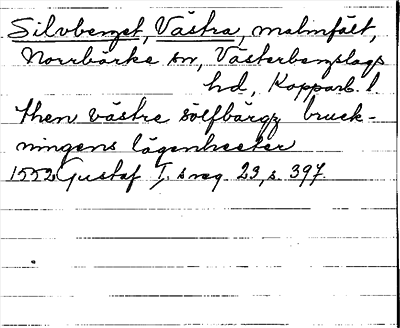 Silvberget, Västra, malmfält,
Norrbärke sn, Västerbergslags
hd, Kopparb. l.
Then västre sölfbärgz bruck-
ningens lägenheeter
1552 Gustaf I. s reg. 23, s. 397.